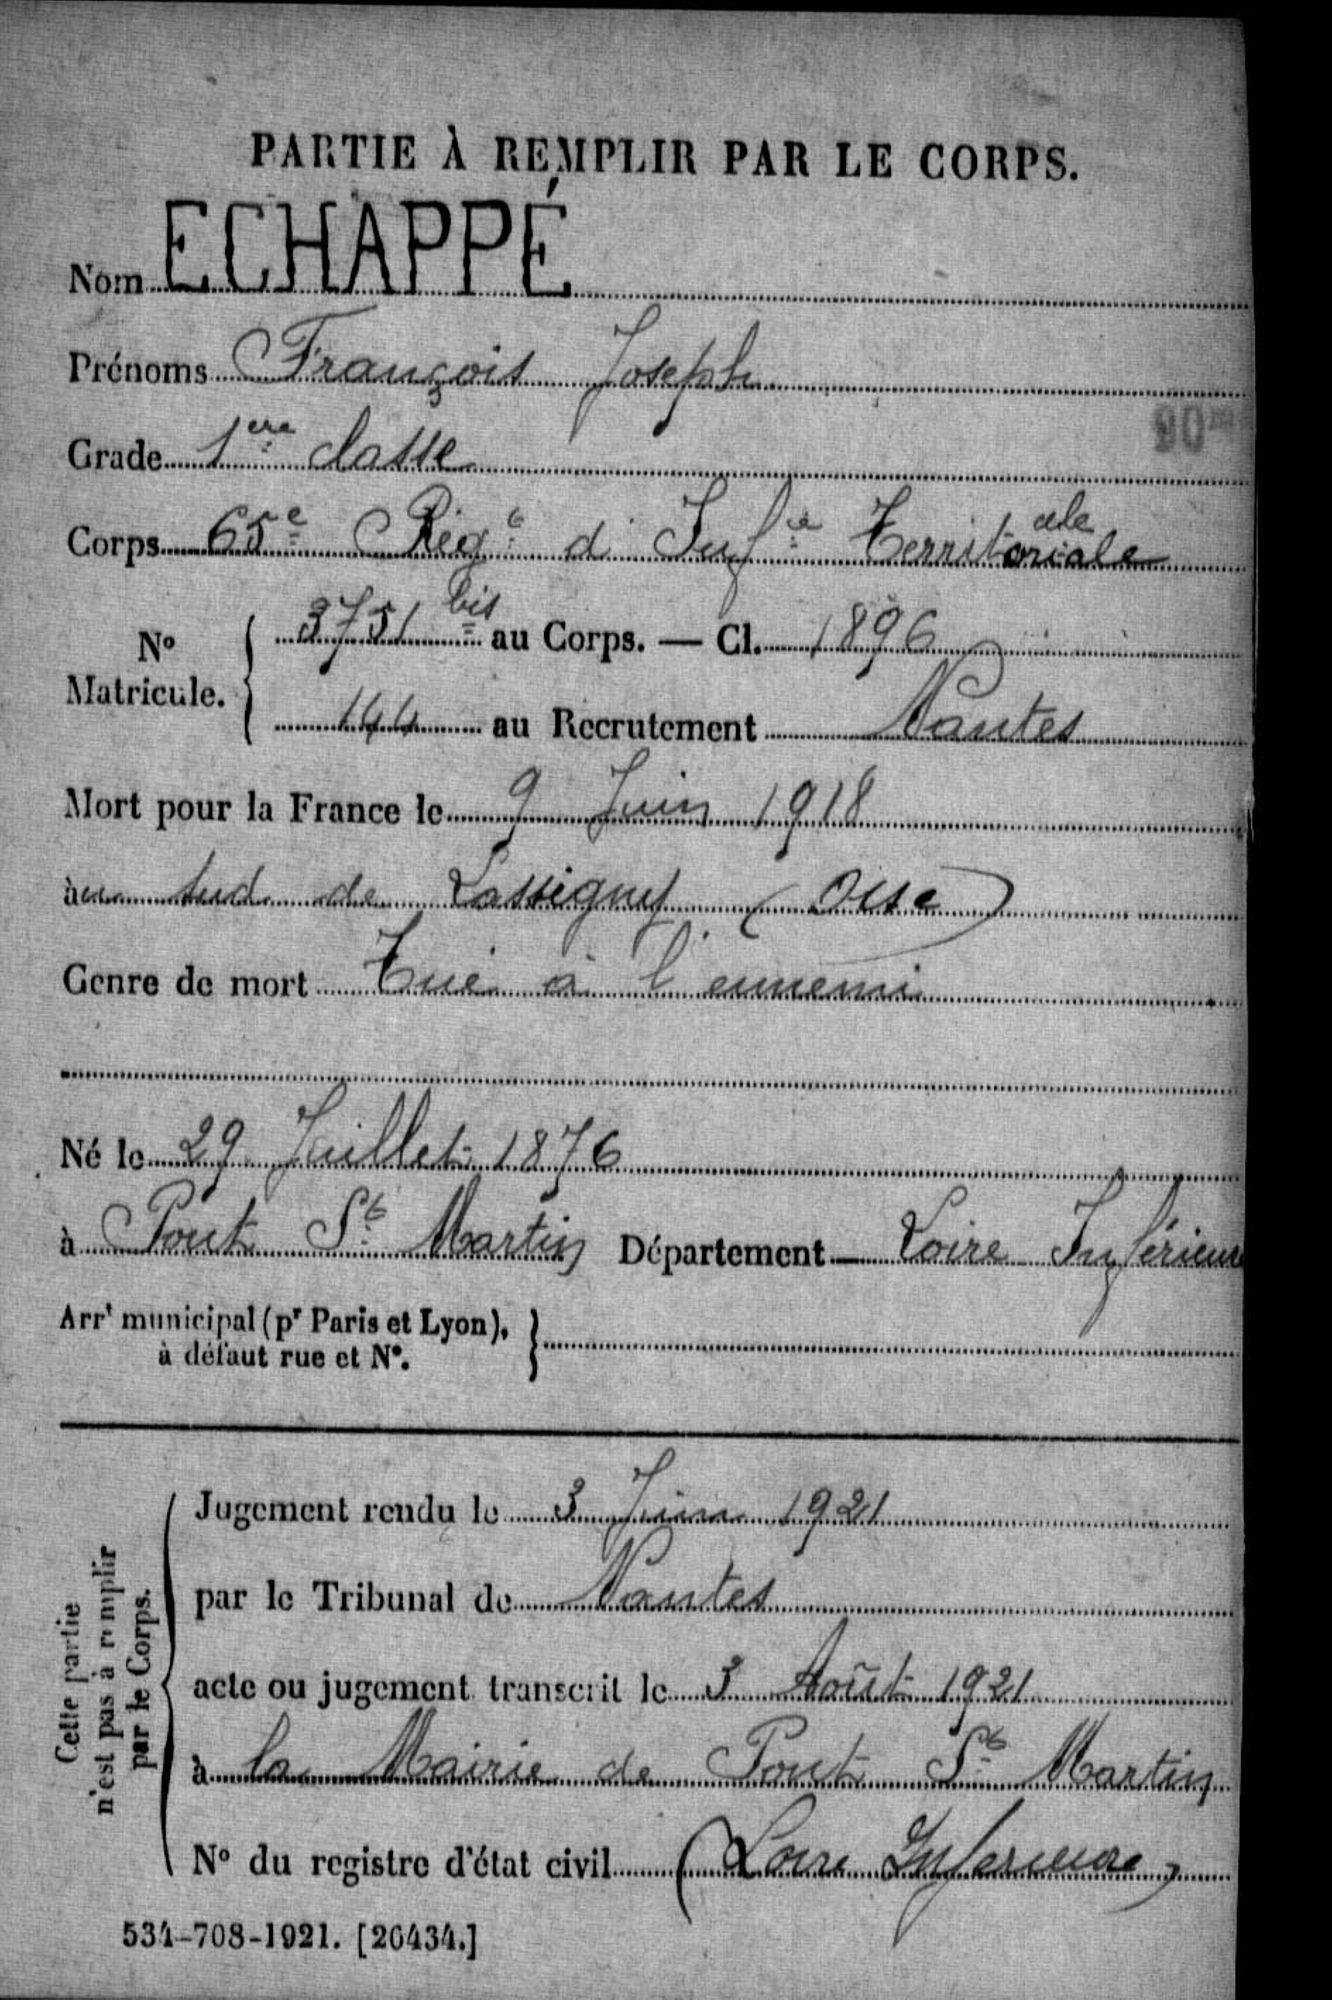 PARTIE À REMPLIR PAR LE CORPS.
Nom ECHAPPÉ
Prénoms François Joseph
90
Grade 1ère classe
Corps 65e Régt d'Infie Territoriale ale
No Matricule. { 3751 bis au Corps. — Cl. 1896
144 au Recrutement Nantes
Mort pour la France le 9 Juin 1918
àu sud de Lassigny (Oise)
Genre de mort Tué à l'ennemi
Né le 29 Juillet 1876
à Pont St Martin Département Loire Inférieure
Arrt municipal (pr Paris et Lyon),
à défaut rue et No. }
Cette partie
n'est pas à remplir
par le Corps.
Jugement rendu le 3 Juin 1921
par le Tribunal de Nantes
acte ou jugement transcrit le 3 Août 1921
à la Mairie de Pont St Martin
No du registre d'état civil (Loire Inférieure)
534-708-1921. [26434.]